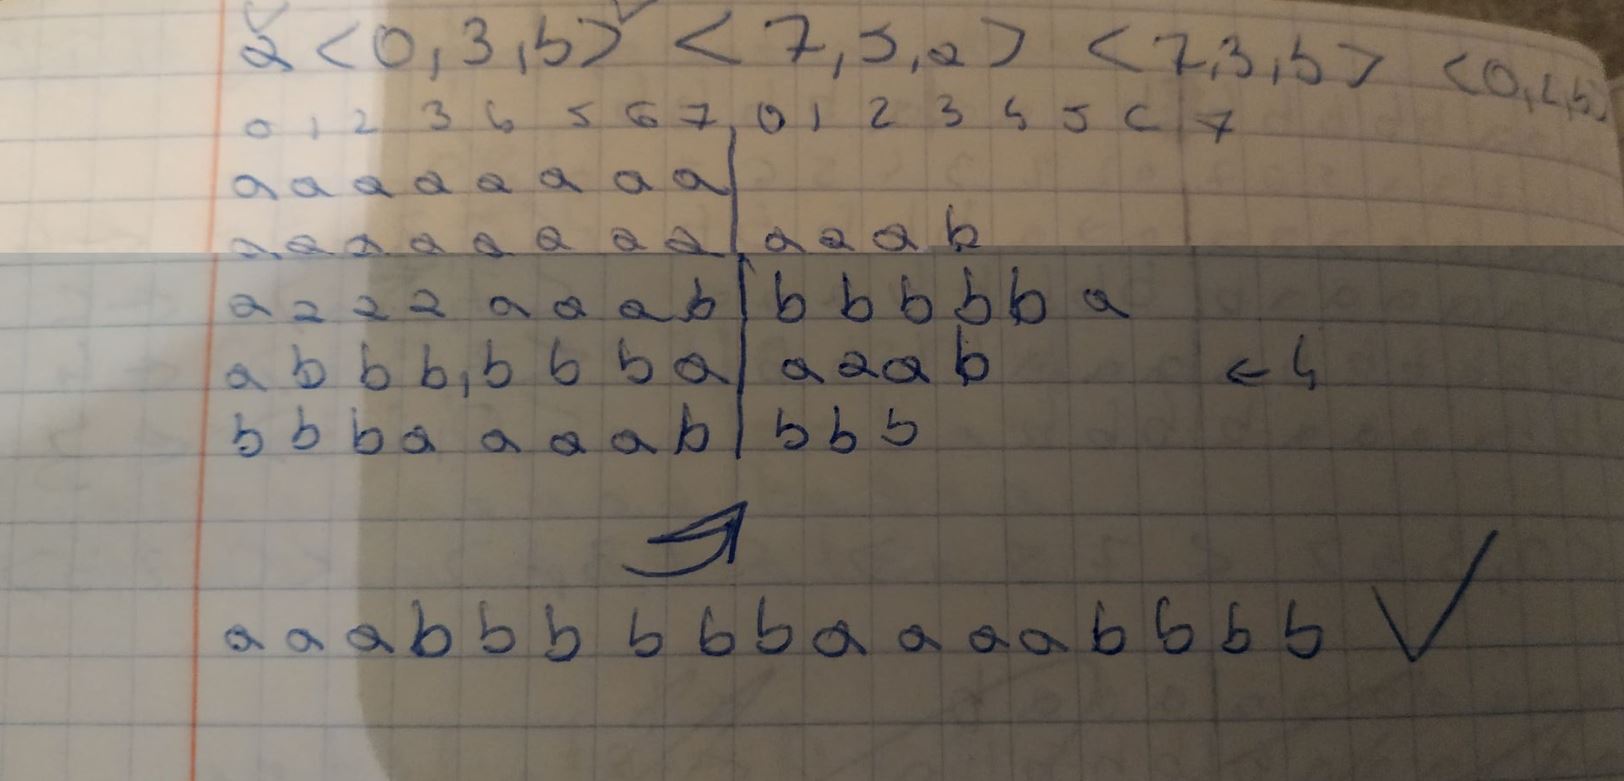 a <0,3,b> <7,5,a> <7,3,b> <0,2,b>
0 1 2 3 4 5 6 7 0 1 2 3 4 5 6 7
a a a a a a a a
a a a a a a a a | a a a b
a a a a a a a b | b b b b b a
a b b b, b b b a | a a a b ← 4
b b b a a a a b | b b b
a a a b b b b b b a a a a b b b b ✓